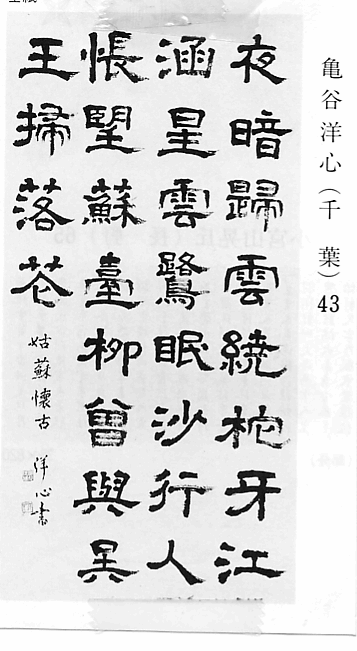 亀谷洋心（千葉）43
夜暗歸雲繞柁牙江
涵星雲鷺眠沙行人
悵望蘇臺柳曾與吳
王掃落花
姑蘇懷古 洋心書